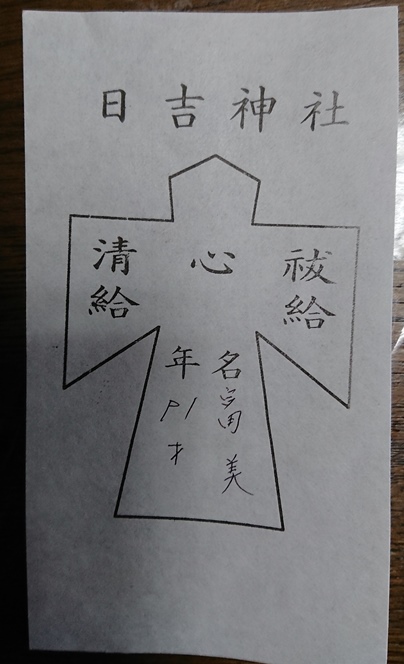 日吉神社
祓給
心
清給
名富美
年 才